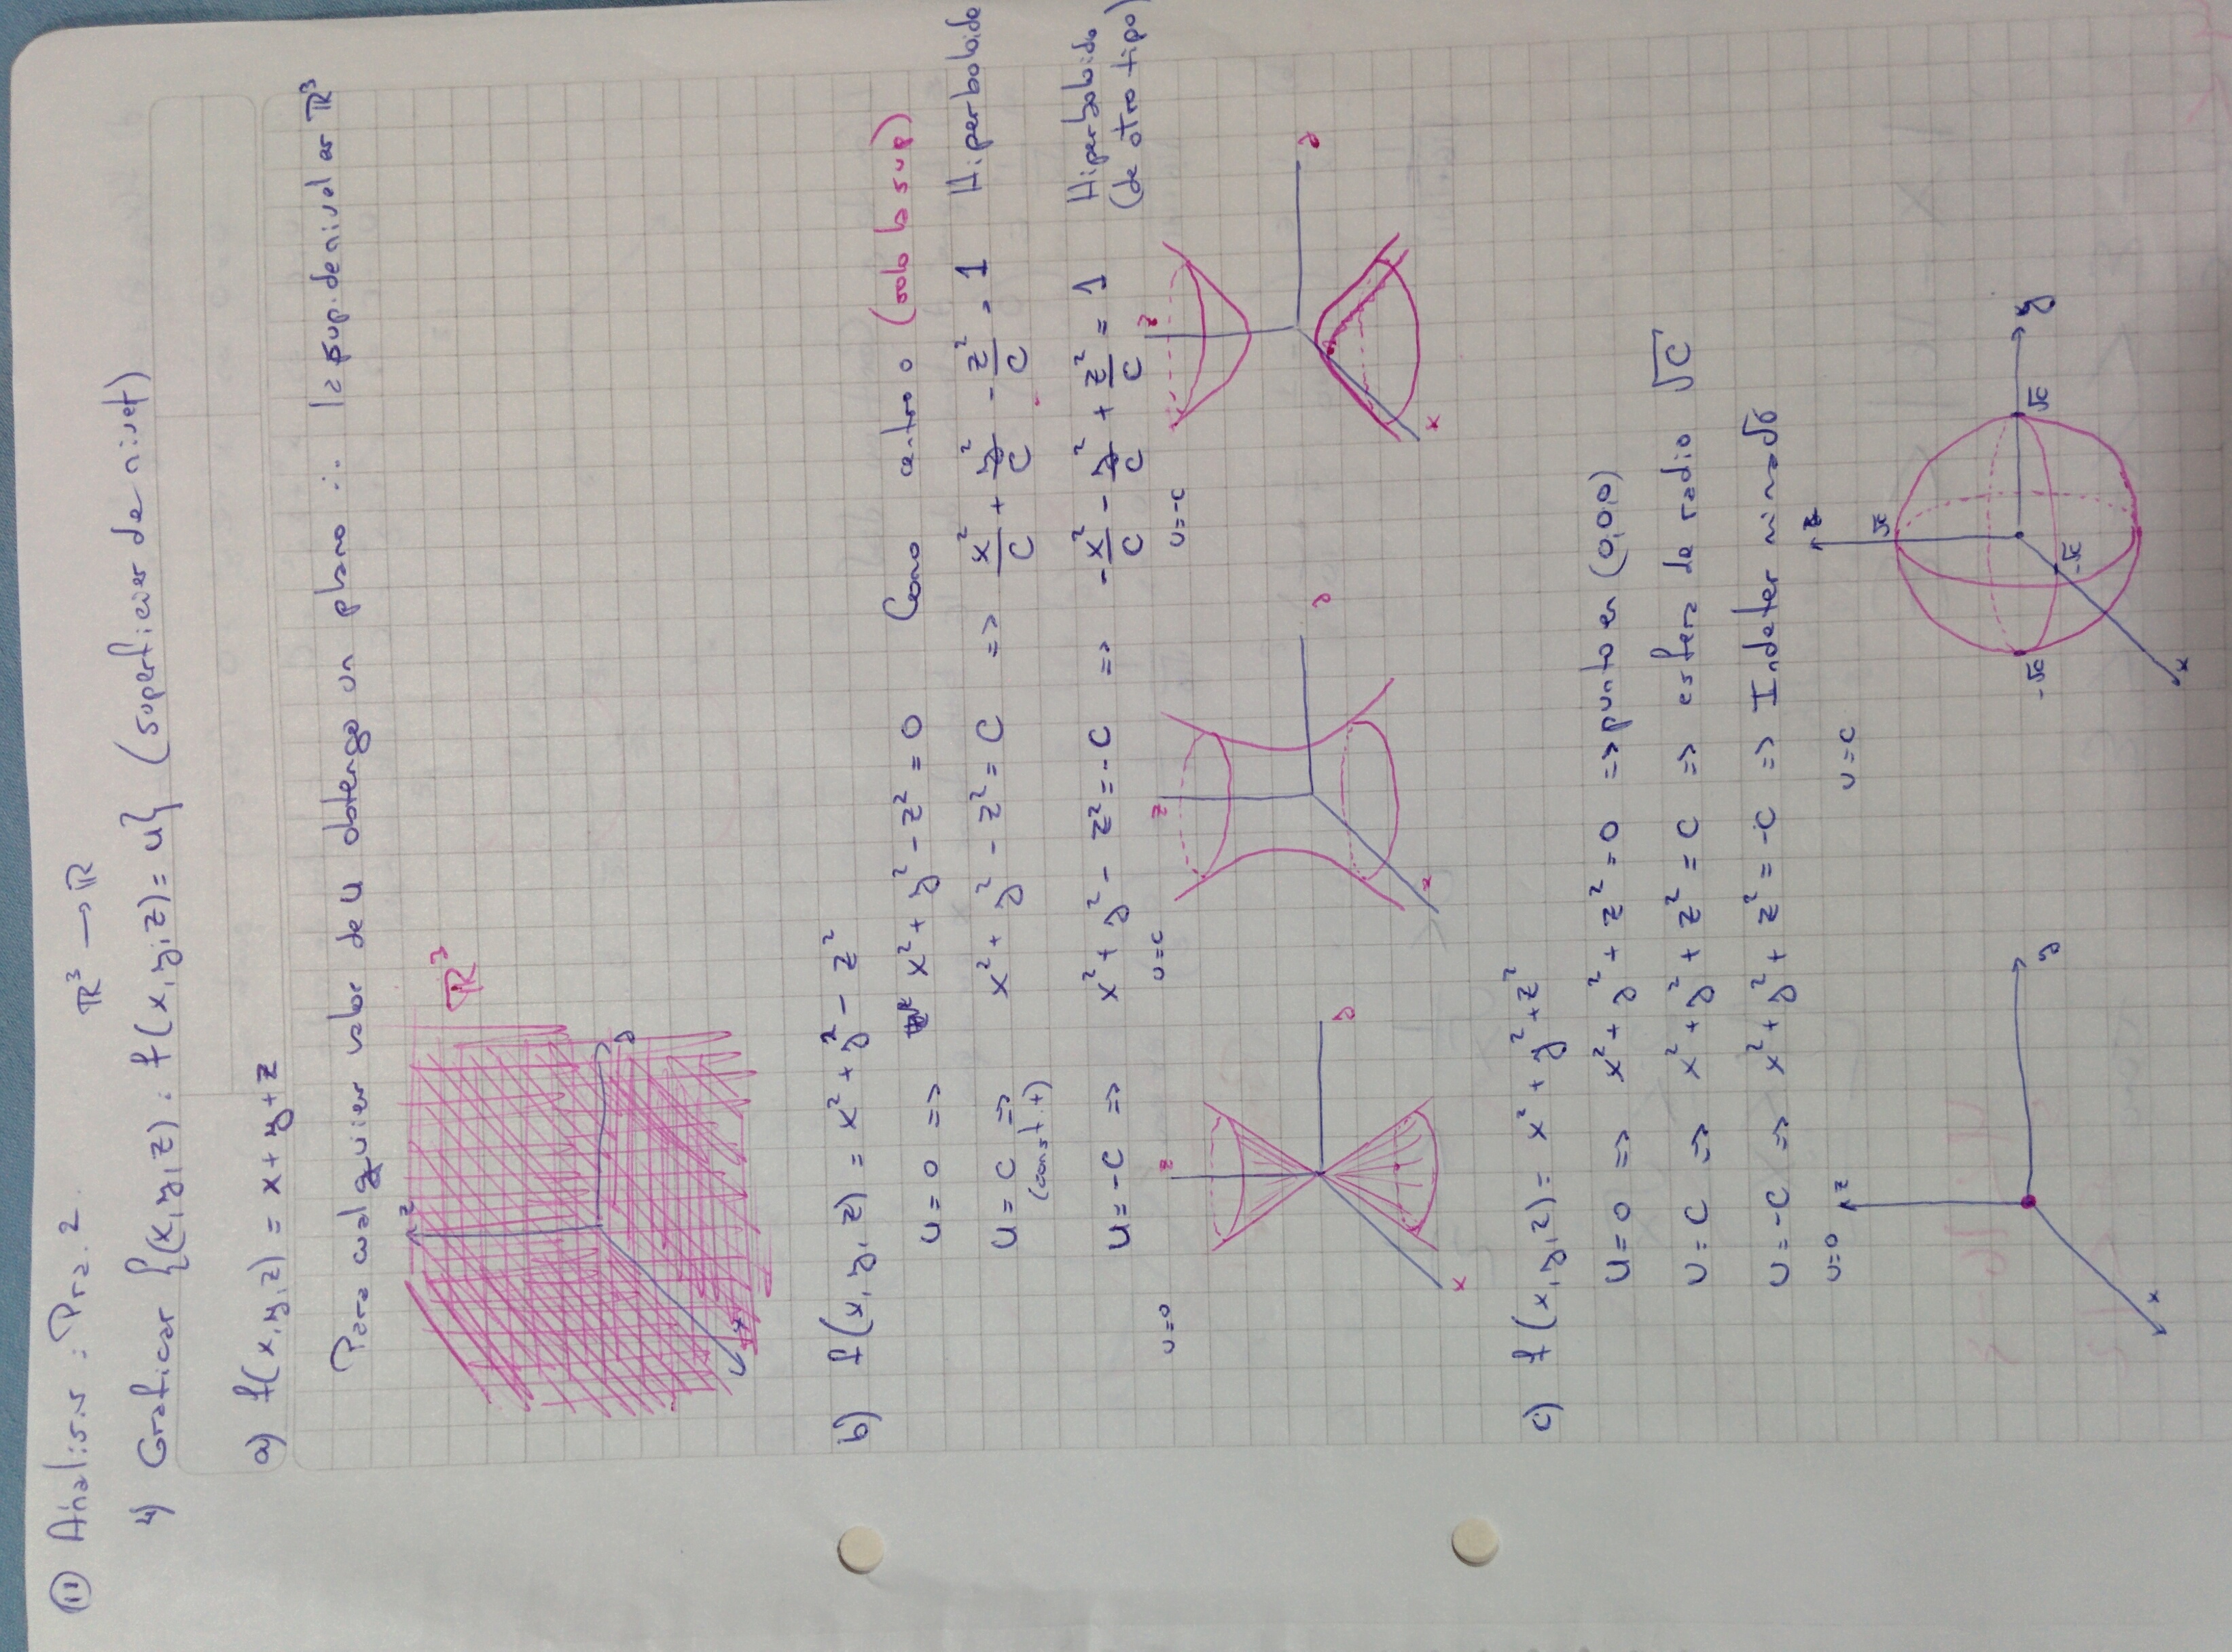 11 Analisis : Pra. 2
ℝ³ → ℝ
4) Graficar {(x,y,z) : f(x,y,z) = u} (superficies de nivel)
a) f(x,y,z) = x + y + z
Para cualquier valor de u obtengo un plano ∴ la sup. de nivel es ℝ³
z
ℝ³
y
x
b) f(x,y,z) = x² + y² - z²
u = 0 => x² + y² - z² = 0 Cono centro 0 (solo la sup)
u = c => x² + y² - z² = C => x²/C + y²/C - z²/C = 1 Hiperboloide
(const. +)
u = -c => x² + y² - z² = -C => -x²/C - y²/C + z²/C = 1 Hiperboloide
(de otro tipo)
u=0 z u=c z u=-c z
y y y
x z x
c) f(x,y,z) = x² + y² + z²
u = 0 => x² + y² + z² = 0 => punto en (0,0,0)
u = C => x² + y² + z² = C => esfera de radio √C
u = -C => x² + y² + z² = -C => Indeterminado
u=0 z u=c z
√c
y -√c √c y
-√c
x x